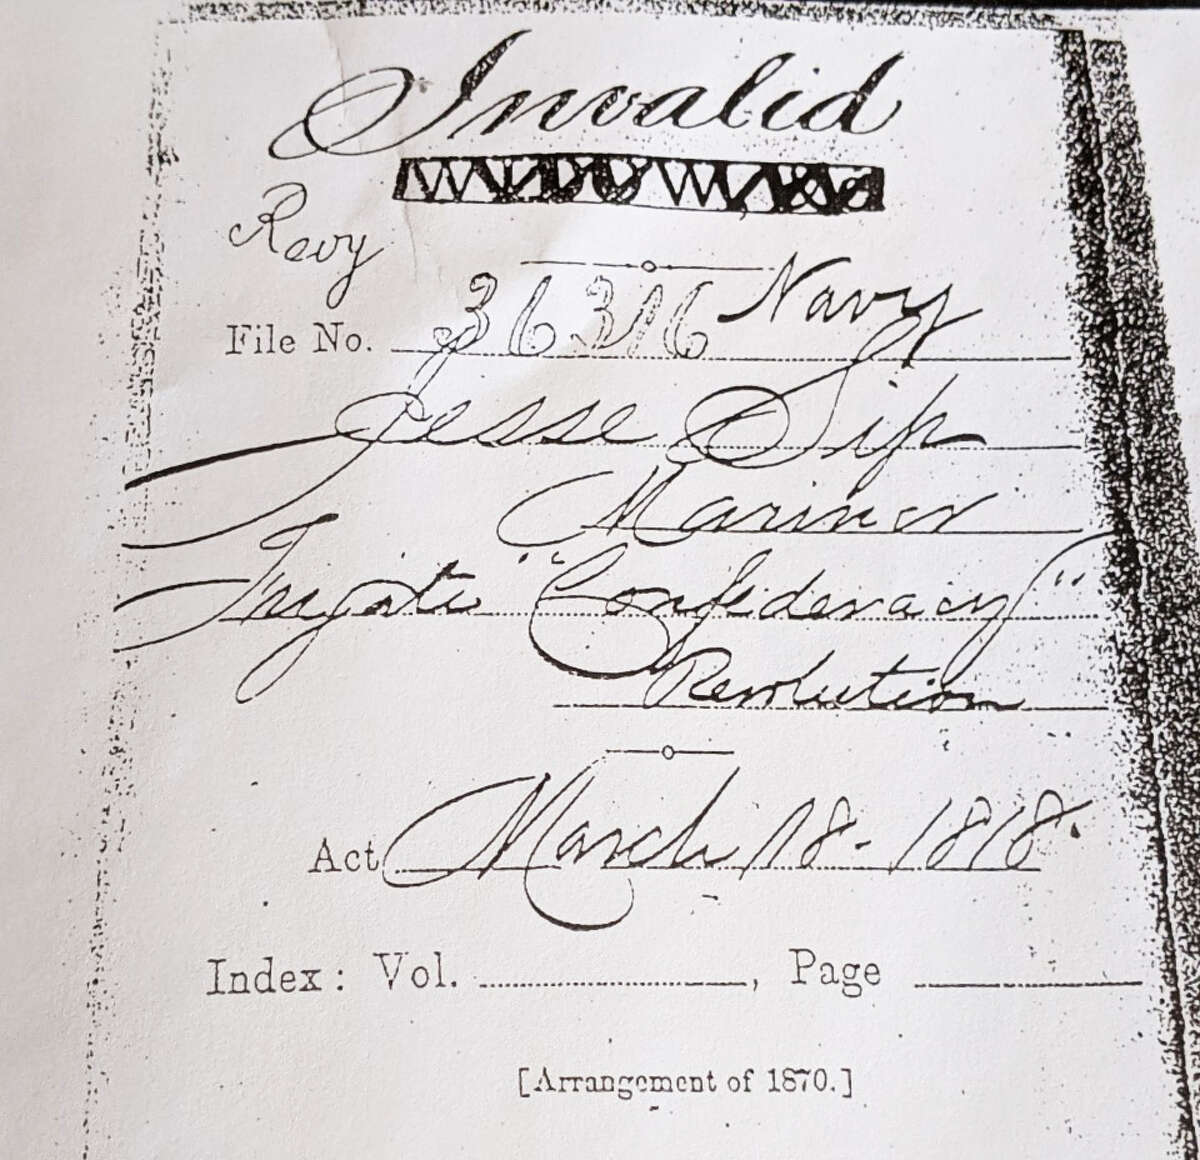 Invalid
WIDOW
Revy
File No. 36316 Navy
Jesse Sip
Mariner
Frigate "Confederacy"
Revolution
Act March 18 - 1818.
Index: Vol. , Page
[Arrangement of 1870.]